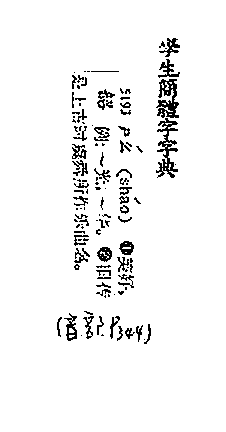 學生簡體字字典
5193 ㄕㄠˊ (sháo) ❶美好,
韶 例:~光;~华。❷旧传
是上古时虞舜所作乐曲名。
(音記P344)